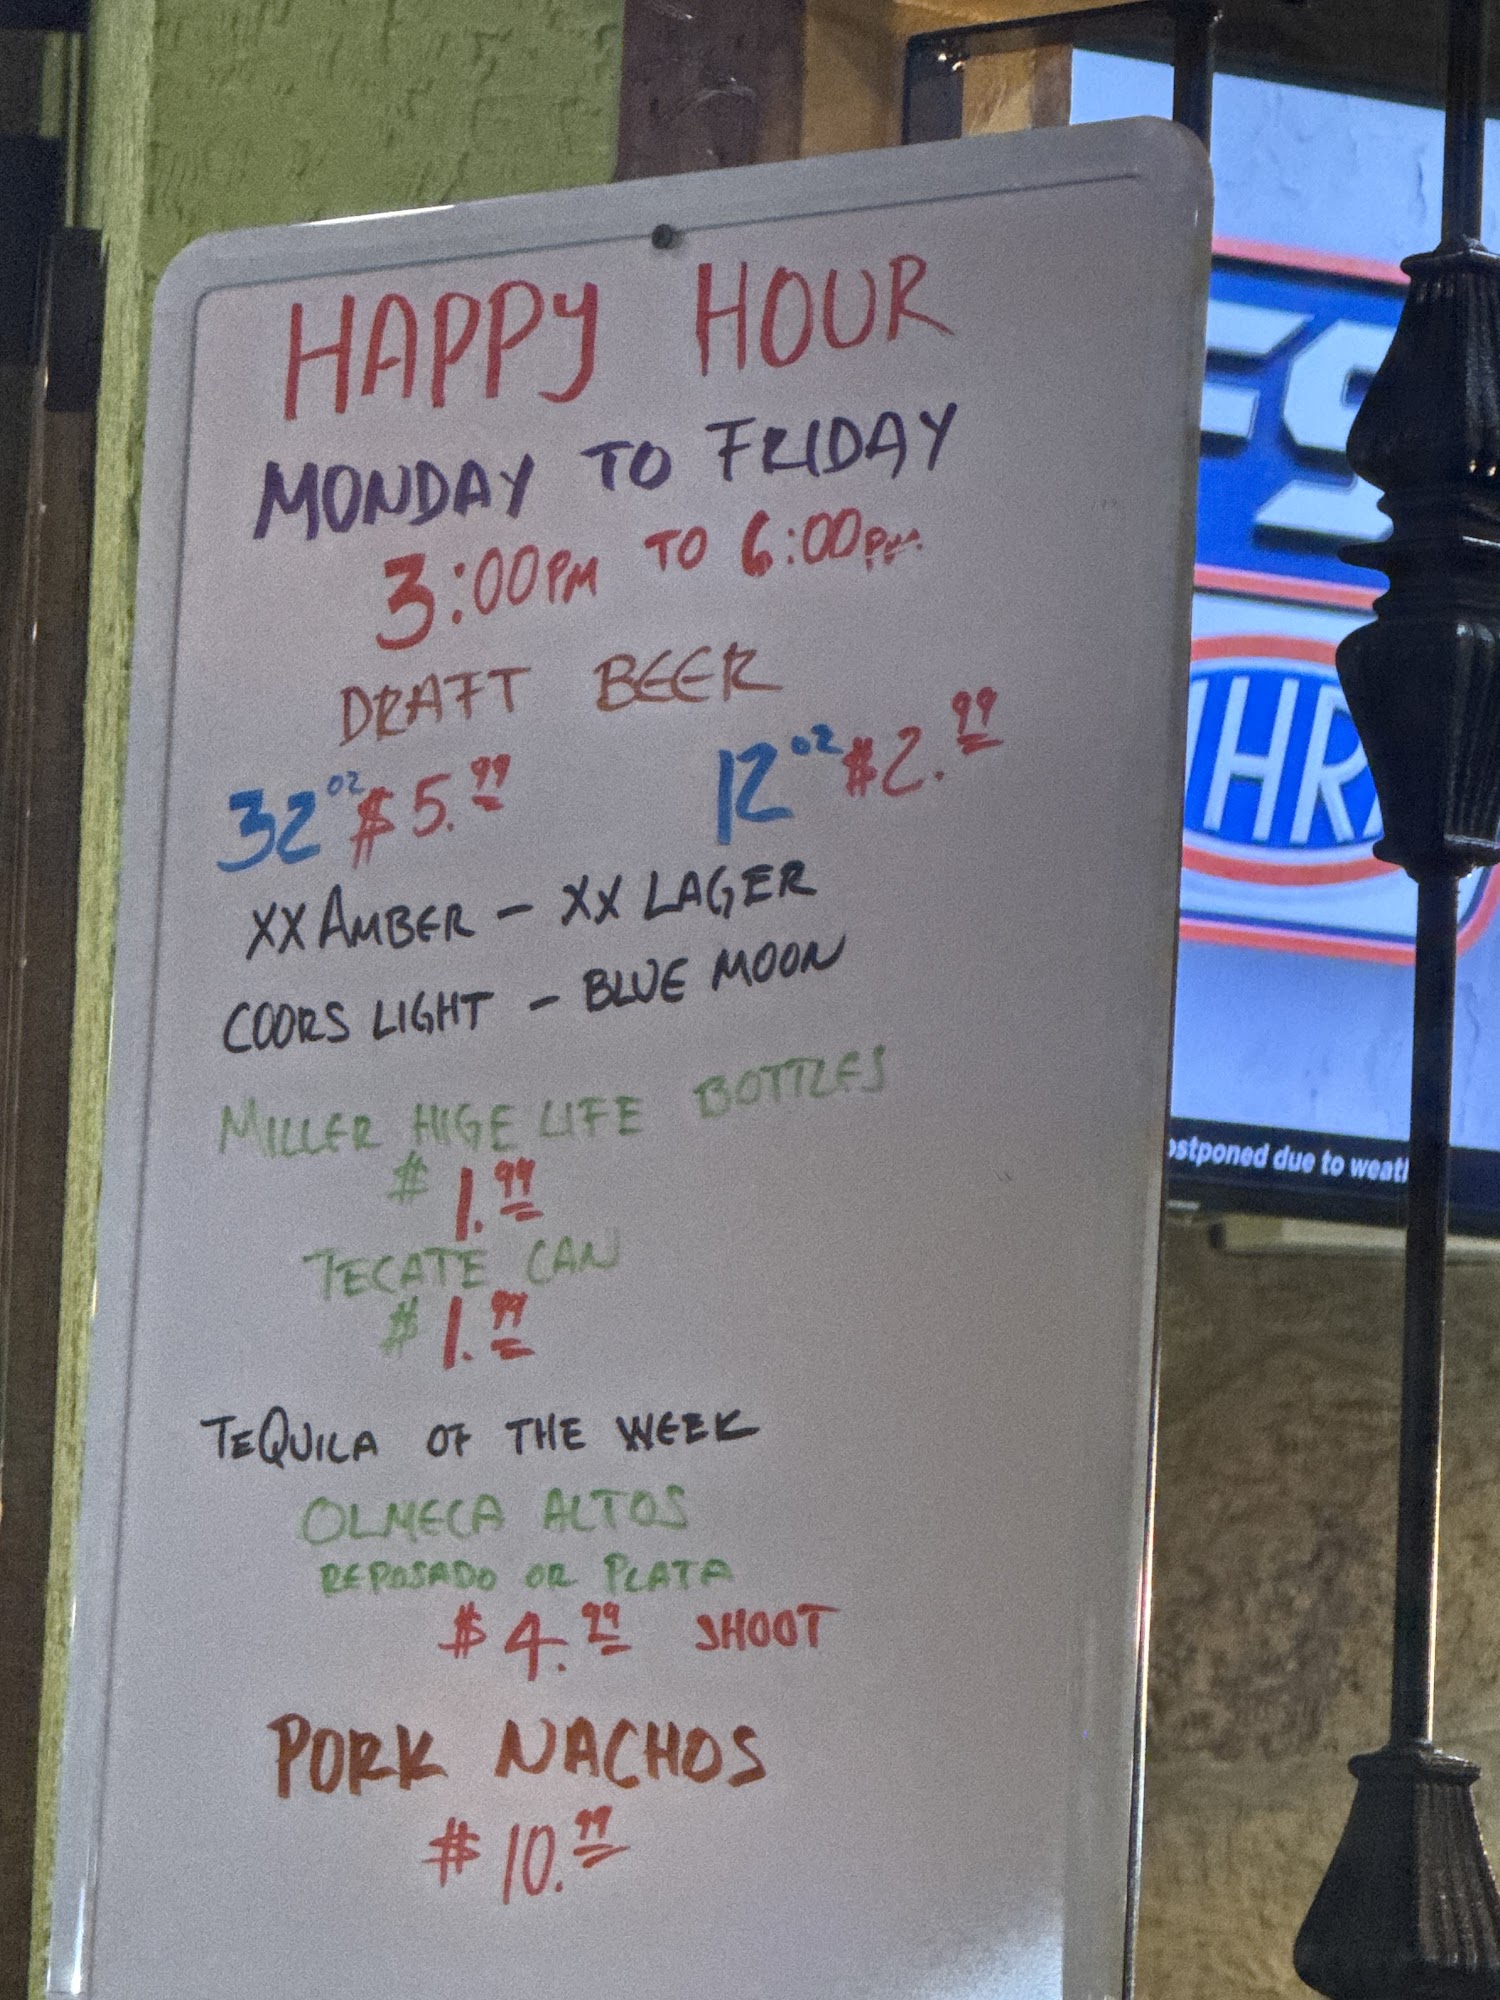 HAPPY HOUR
MONDAY TO FRIDAY
3:00PM TO 6:00PM
DRAFT BEER
32 OZ $5.99 12 OZ $2.99
XX AMBER - XX LAGER
COORS LIGHT - BLUE MOON
MILLER HIGE LIFE BOTTLES
$1.99
TECATE CAN
$1.99
TEQUILA OF THE WEEK
OLMECA ALTOS
REPOSADO OR PLATA
$4.99 SHOOT
PORK NACHOS
$10.99
ES
NHRA
ostponed due to weath